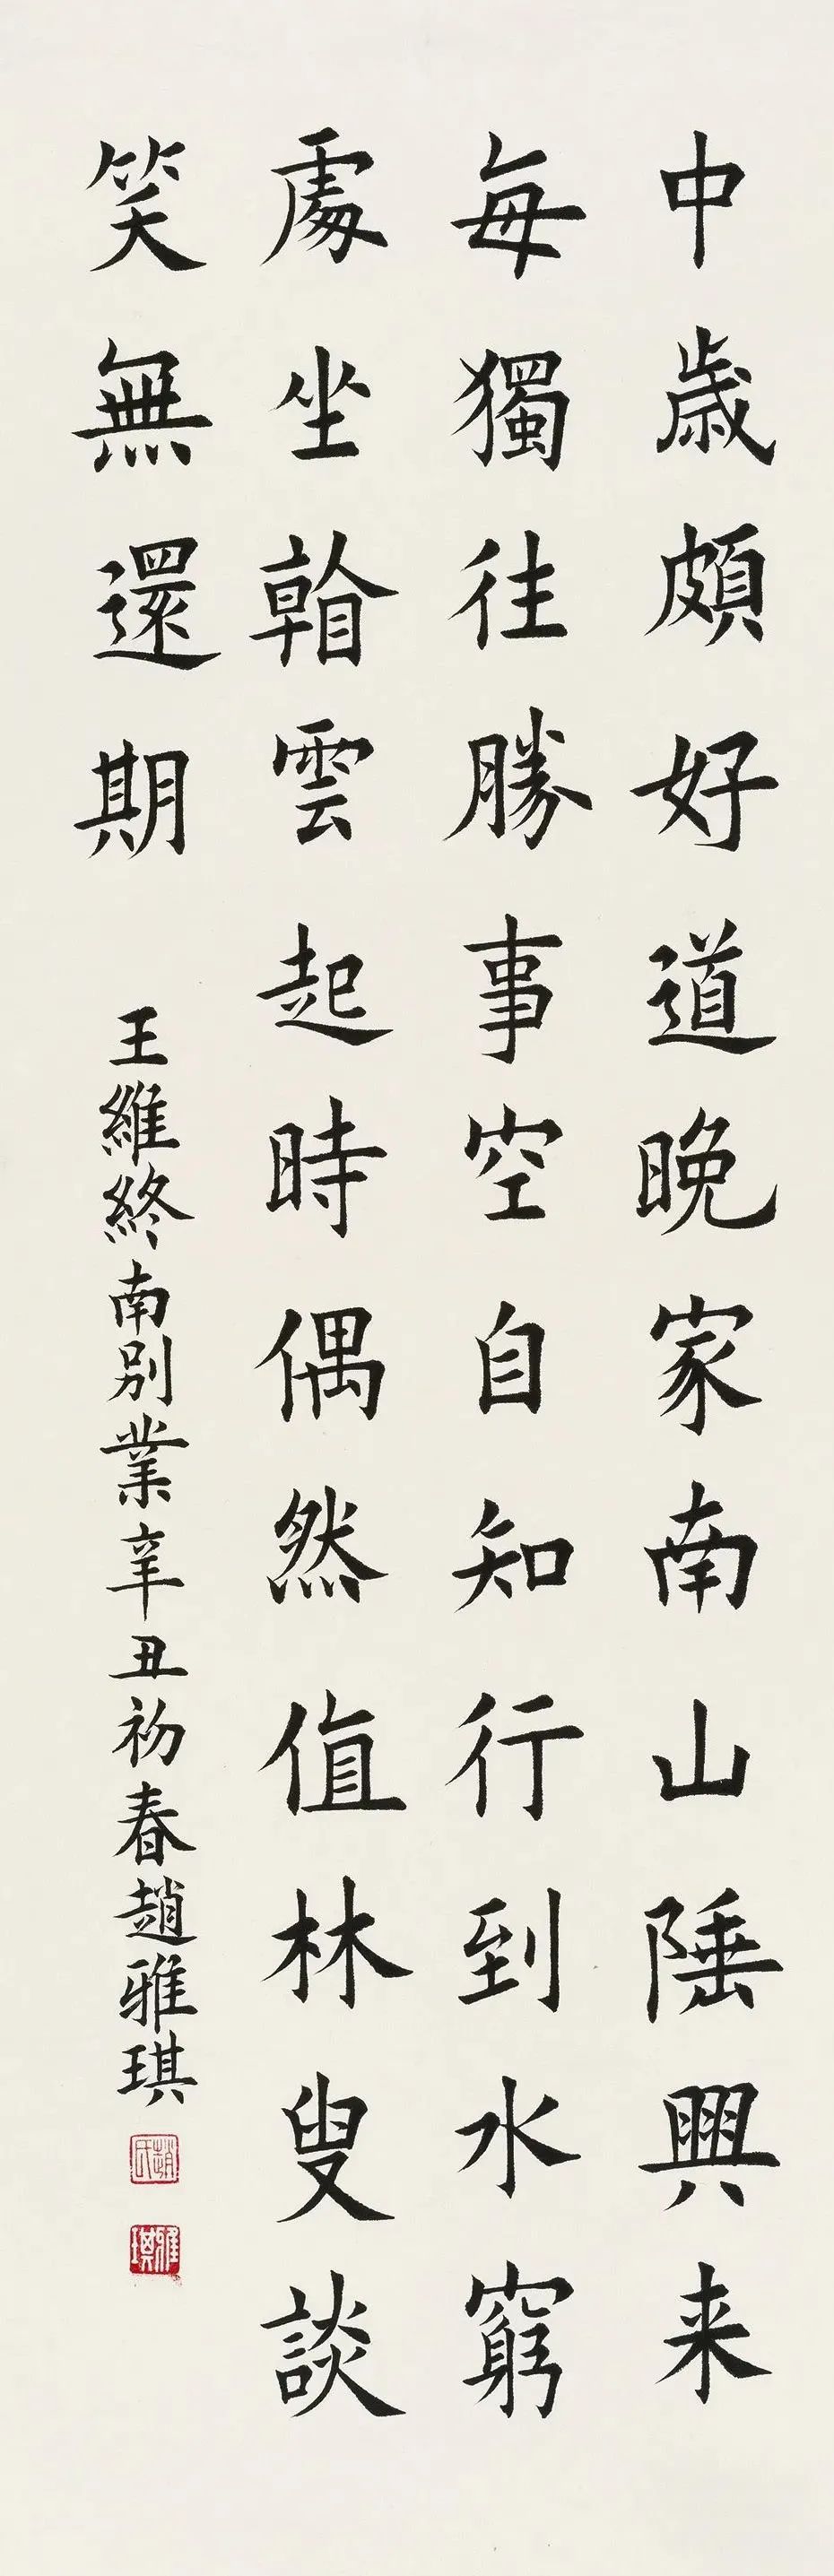 中歲頗好道晚家南山陲興来
每獨往勝事空自知行到水窮
處坐𥉼雲起時偶然值林叟談
笑無還期
王維終南別業辛丑初春趙雅琪
趙氏
雅琪